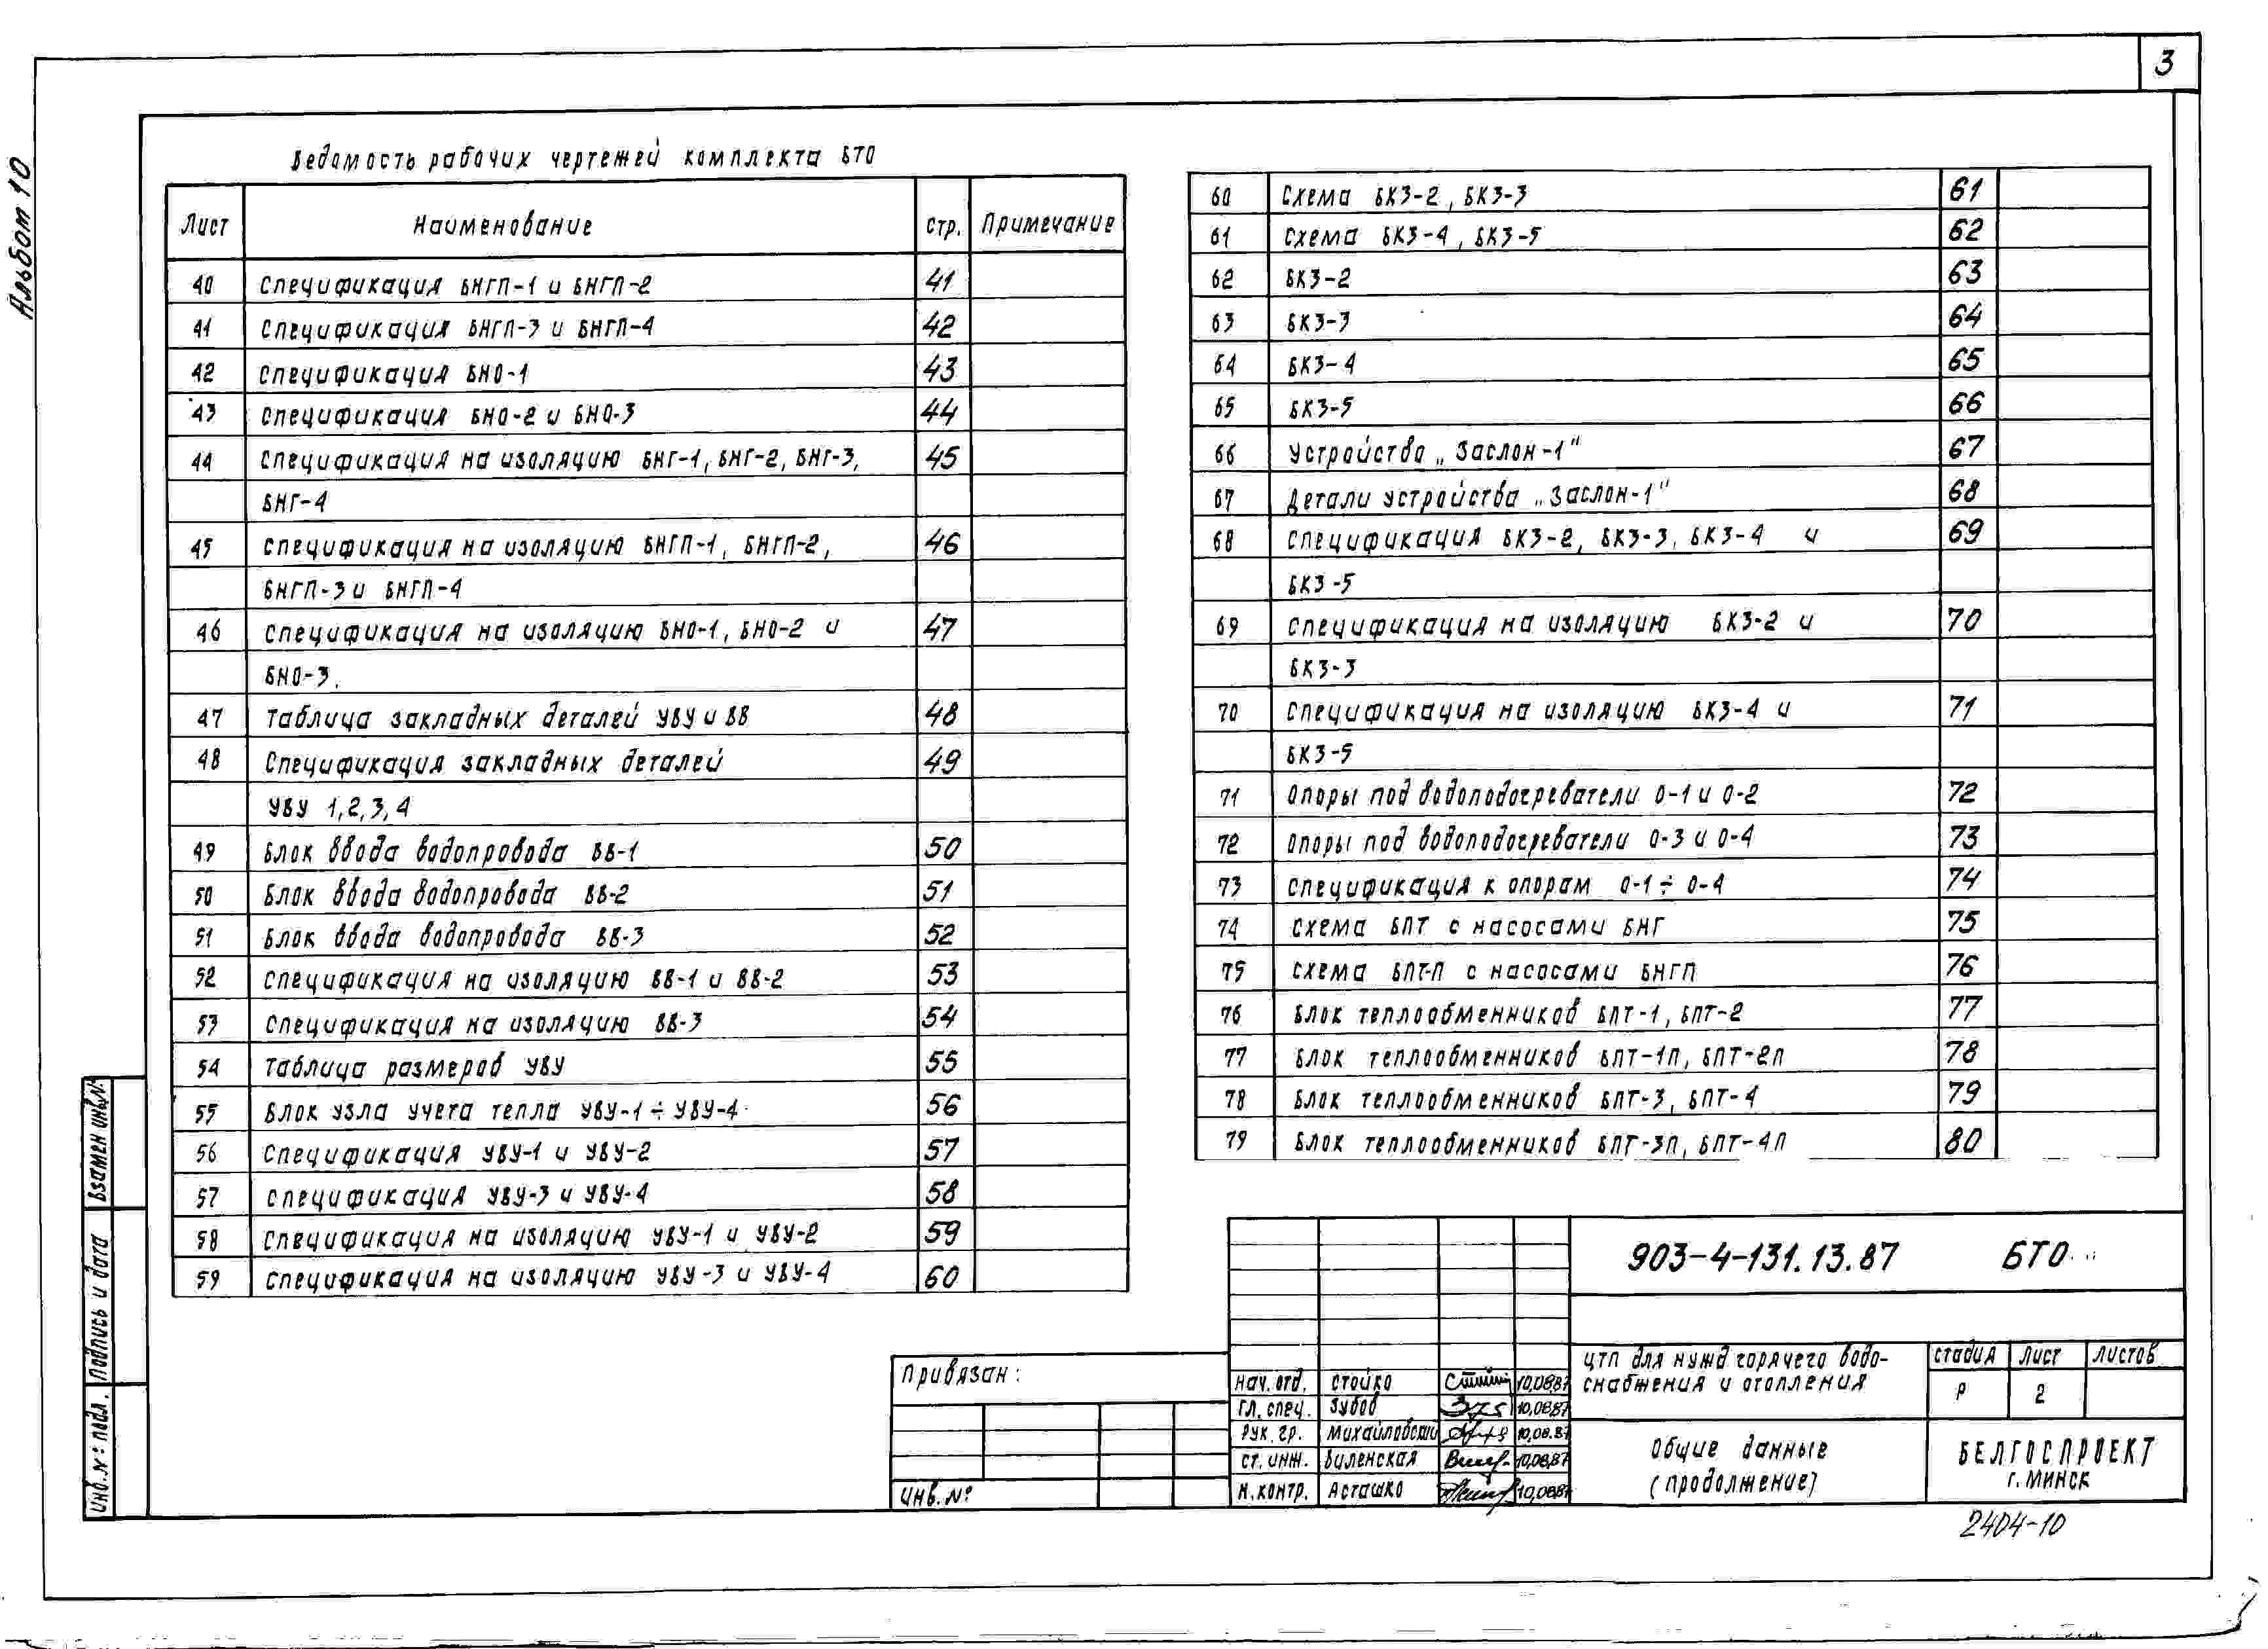 3
Альбом 10
Ведомость рабочих чертежей комплекта БТО
Лист Наименование стр. Примечание
40 Спецификация БНГП-1 и БНГП-2 41
41 Спецификация БНГП-3 и БНГП-4 42
42 Спецификация БНО-1 43
43 Спецификация БНО-2 и БНО-3 44
44 Спецификация на изоляцию БНГ-1, БНГ-2, БНГ-3, 45
БНГ-4
45 Спецификация на изоляцию БНГП-1, БНГП-2, 46
БНГП-3 и БНГП-4
46 Спецификация на изоляцию БНО-1, БНО-2 и 47
БНО-3.
47 Таблица закладных деталей УВУ и ВВ 48
48 Спецификация закладных деталей 49
УВУ 1,2,3,4
49 Блок ввода водопровода ВВ-1 50
50 Блок ввода водопровода ВВ-2 51
51 Блок ввода водопровода ВВ-3 52
52 Спецификация на изоляцию ВВ-1 и ВВ-2 53
53 Спецификация на изоляцию ВВ-3 54
54 Таблица размеров УВУ 55
55 Блок узла учета тепла УВУ-1 ÷ УВУ-4 56
56 Спецификация УВУ-1 и УВУ-2 57
57 Спецификация УВУ-3 и УВУ-4 58
58 Спецификация на изоляцию УВУ-1 и УВУ-2 59
59 Спецификация на изоляцию УВУ-3 и УВУ-4 60
60 Схема БКЗ-2, БКЗ-3 61
61 Схема БКЗ-4, БКЗ-5 62
62 БКЗ-2 63
63 БКЗ-3 64
64 БКЗ-4 65
65 БКЗ-5 66
66 Устройство „Заслон-1" 67
67 Детали устройства „Заслон-1" 68
68 Спецификация БКЗ-2, БКЗ-3, БКЗ-4 и 69
БКЗ-5
69 Спецификация на изоляцию БКЗ-2 и 70
БКЗ-3
70 Спецификация на изоляцию БКЗ-4 и 71
БКЗ-5
71 Опоры под водоподогреватели О-1 и О-2 72
72 Опоры под водоподогреватели О-3 и О-4 73
73 Спецификация к опорам О-1 ÷ О-4 74
74 Схема БПТ с насосами БНГ 75
75 Схема БПТ-П с насосами БНГП 76
76 Блок теплообменников БПТ-1, БПТ-2 77
77 Блок теплообменников БПТ-1П, БПТ-2П 78
78 Блок теплообменников БПТ-3, БПТ-4 79
79 Блок теплообменников БПТ-3П, БПТ-4П 80
Взамен инв.№
Подпись и дата
Инв.№ подл.
Привязан:
Инв. №
Нач. отд. Стойко 10.08.87
Гл. спец. Зубов 10.08.87
Рук. гр. Михайловский 10.08.87
Ст. инж. Виленская 10.08.87
Н. контр. Асташко 10.08.87
903-4-131.13.87 БТО
ЦТП для нужд горячего водо-
снабжения и отопления
Стадия Лист Листов
Р 2
Общие данные
(продолжение)
БЕЛГОСПРОЕКТ
г. Минск
2404-10